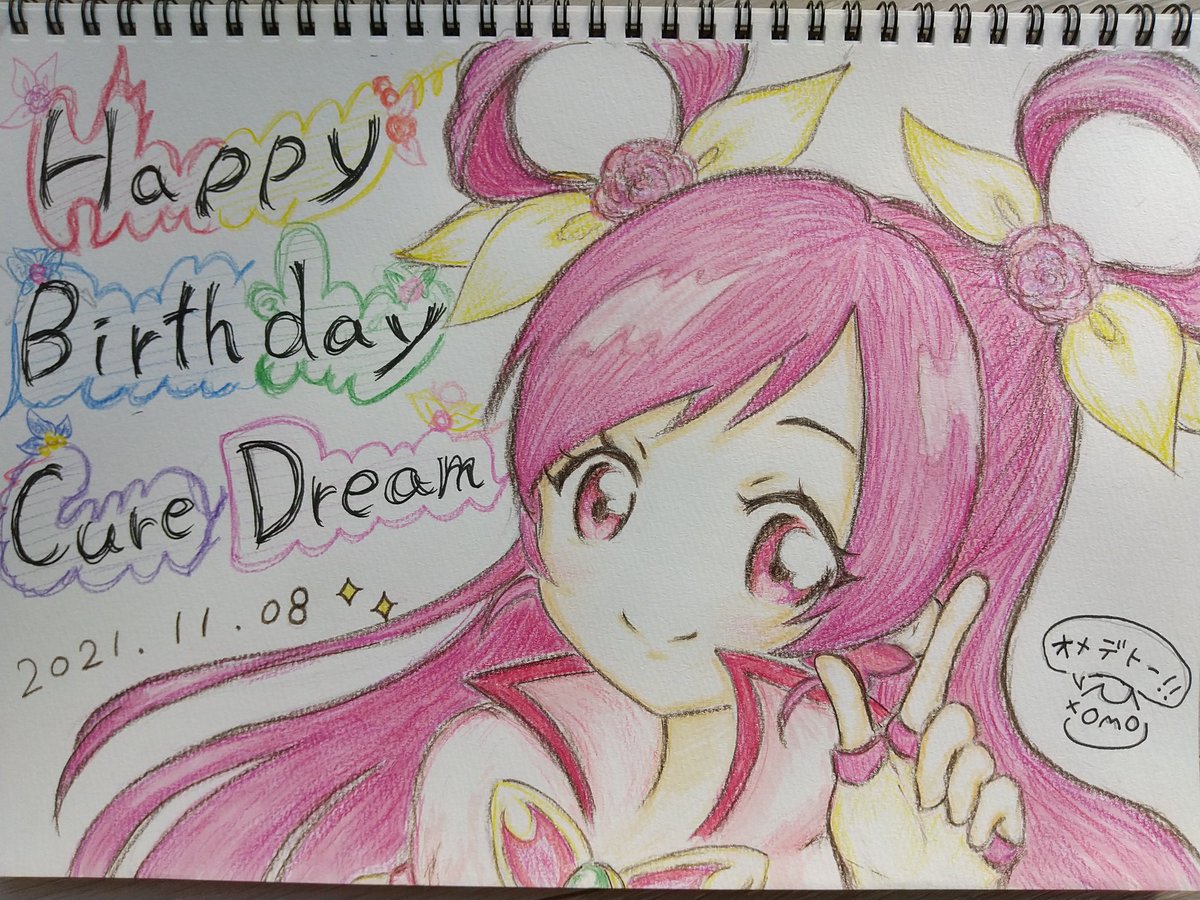 Happy
Birthday
Cure Dream
2021.11.08
オメデトー!!